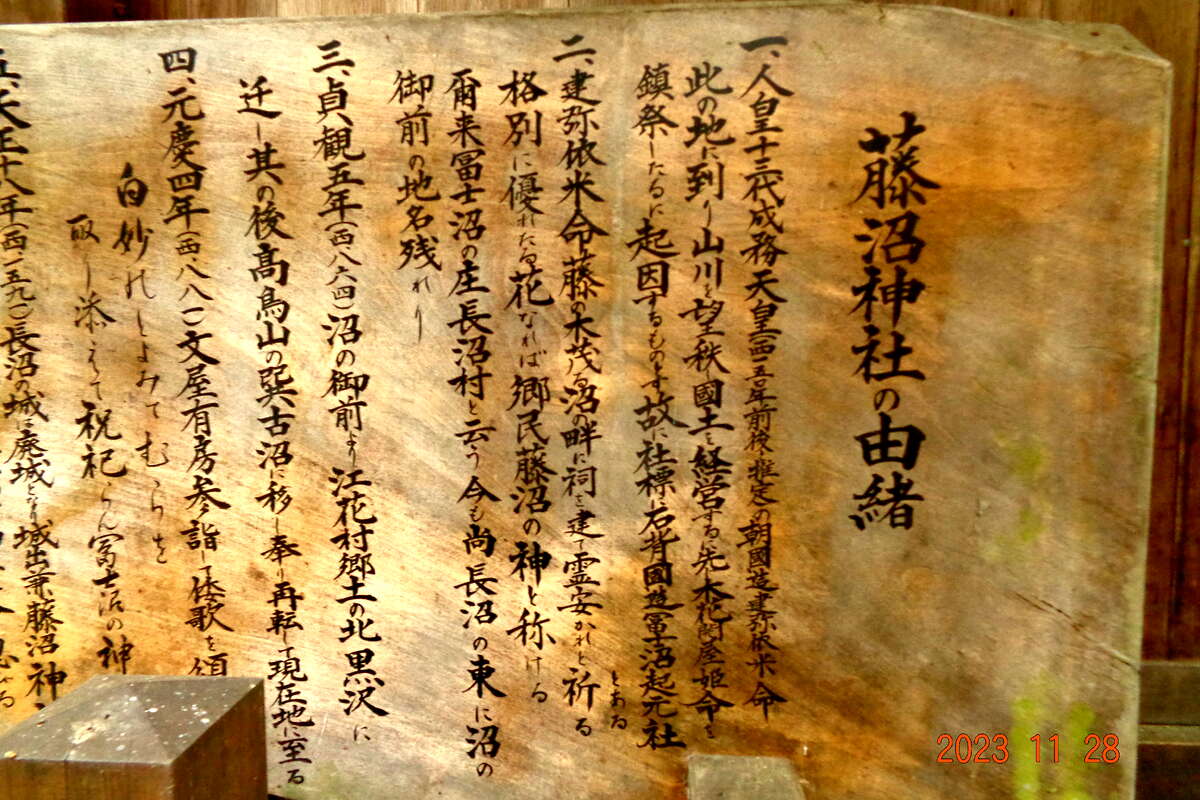 藤沼神社の由緒
一、人皇十三代成務天皇(西一五〇年前後推定の朝國造建弥依米命
此の地に到り山川を望秩國土を経営する先木花開屋姫命を
鎮祭したるに起因するものとす故に社標に石背國造冨士沼起元社
とある
二、建弥依米命藤の木茂る沼の畔に祠を建て霊安かれと祈る
格別に優れたる花なれば郷民藤沼の神と称ける
爾来冨士沼の庄長沼村と云う今も尚長沼の東に沼の
御前の地名残れり
三、貞観五年(西、八六四)沼の御前より江花村郷土の北黒沢に
迁し其の後髙鳥山の巽古沼に移し奉り再転して現在地に至る
四、元慶四年(西、八八一)文屋有房参詣して倭歌を頌
白妙れとよみてむらを
取り添えて祝祀らん冨士沼の神
五、天正十八年(西一五九〇)長沼の城に廃城となり城出兼藤沼神
2023 11 28